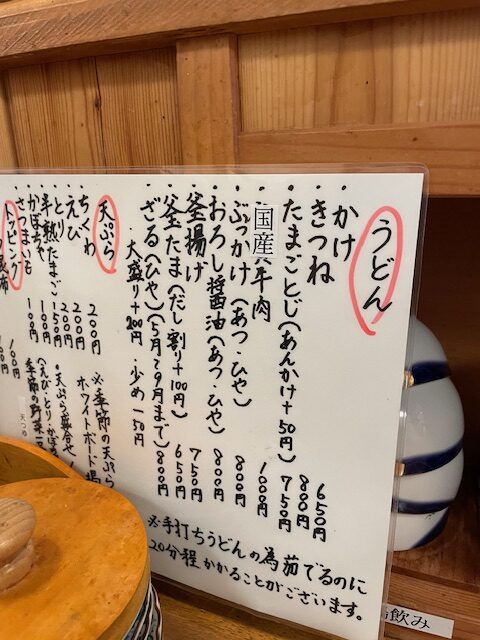 うどん
・かけ 650円
・きつね 800円
・たまごとじ(あんかけ+50円) 750円
・国産牛肉 1000円
・ぶっかけ(あつ・ひや) 800円
・おろし醤油(あつ・ひや) 800円
・釜揚げ 750円
・釜たま(だし割り+100円) 650円
・ざる(ひや)(5月〜9月まで) 800円
大盛り+200円 ・少め-50円
※手打ちうどんの為茹でるのに
20分程かかることがございます。
天ぷら
・ちくわ 200円
・えび 200円
・とり 200円
・半熟たまご 150円
・かぼちゃ 100円
・さつまいも 100円
※季節の天ぷら
ホワイトボード
・天ぷら盛合せ
(えび・とり・かぼ
季節の野菜
トッピング
昆布
100円
飲み